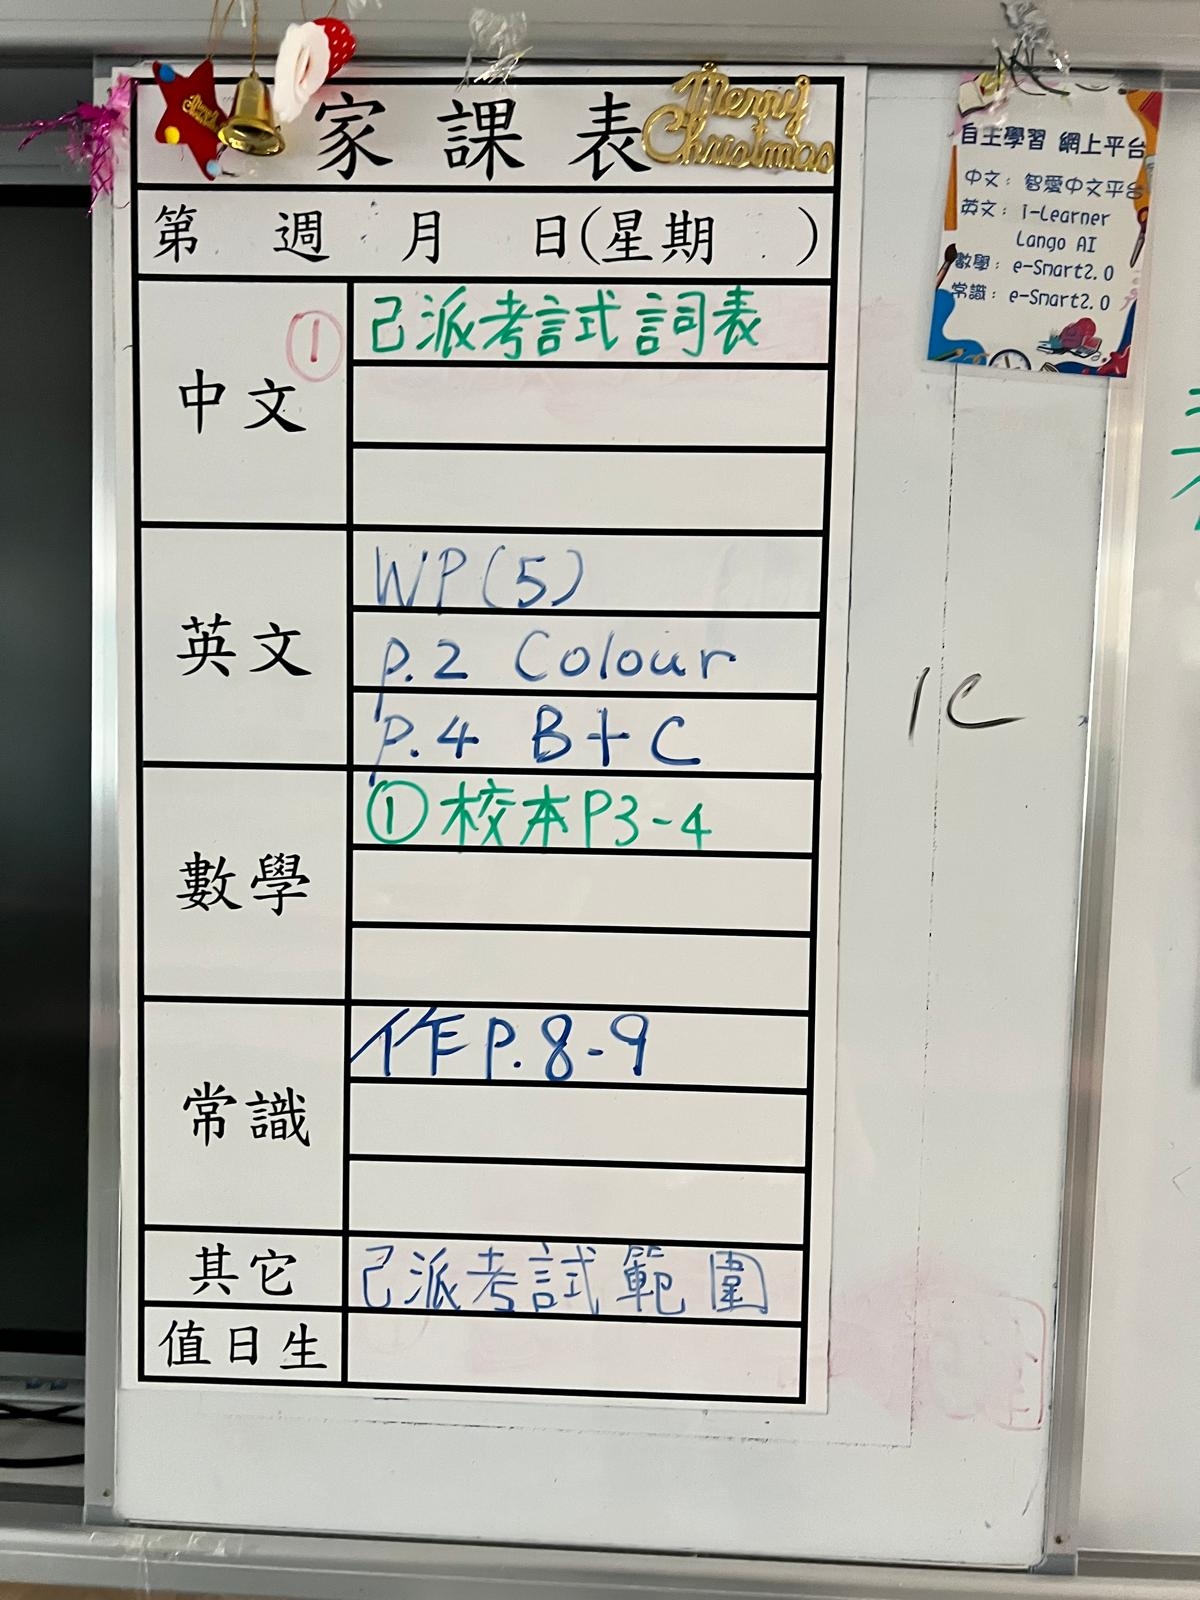 家課表
Merry Christmas
第 週 月 日(星期 )
中文
①
己派考試詞表
英文
WP(5)
p.2 Colour
p.4 B+C
數學
①校本P3-4
常識
作P.8-9
其它
己派考試範圍
值日生
1C
自主學習 網上平台
中文: 智愛中文平台
英文: i-Learner
Lango AI
數學: e-Smart2.0
常識: e-Smart2.0